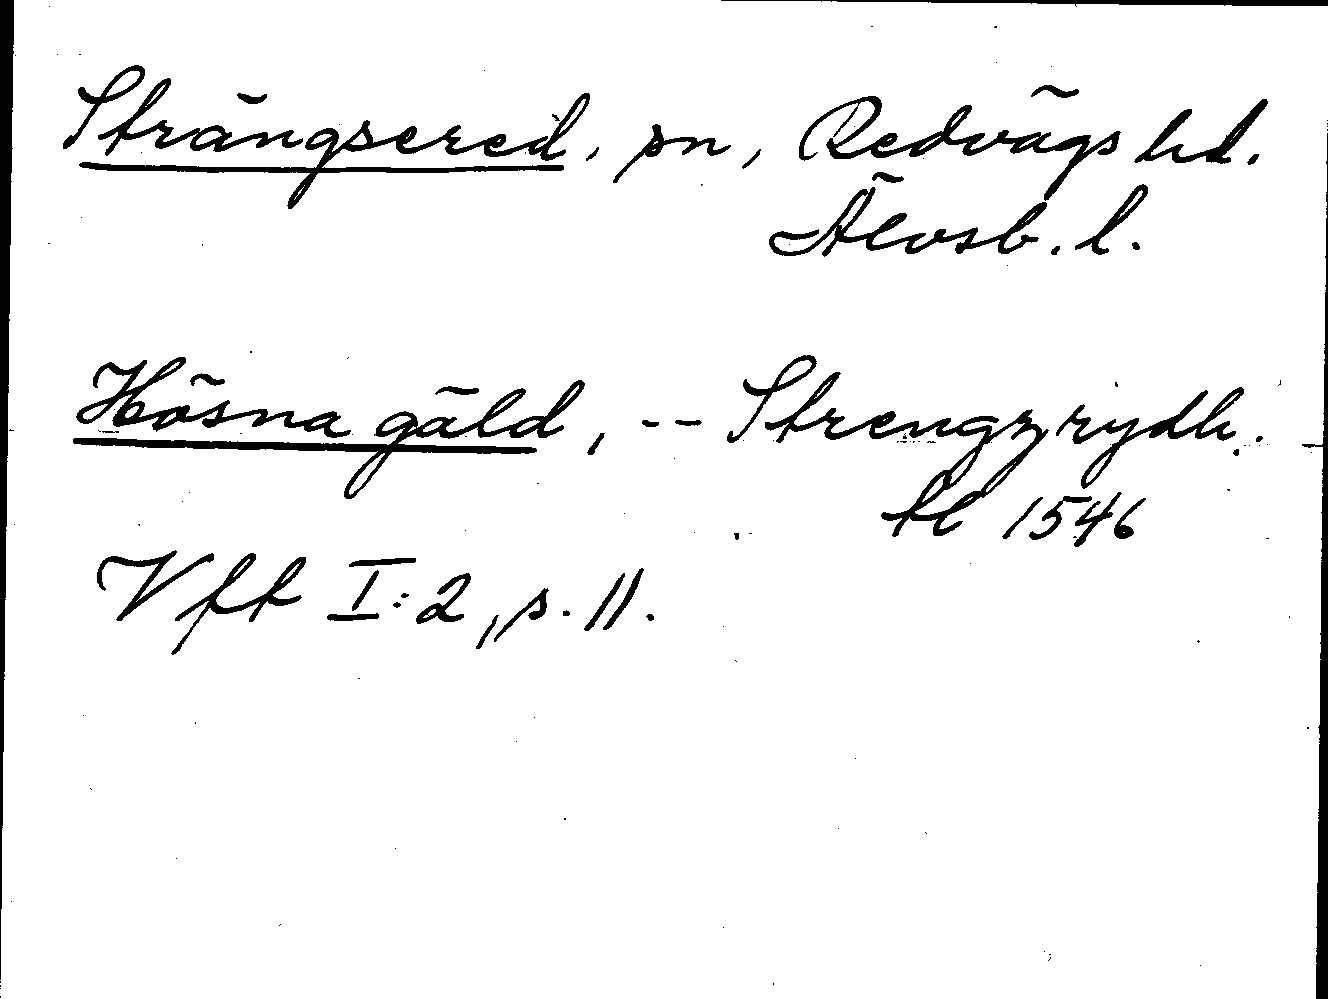 Strängsered, sn, Redvägs hd.
Älvsb. l.
Hösna gäld, -- Strengzrydh.
tl 1546
Vftt I:2, s. 11.